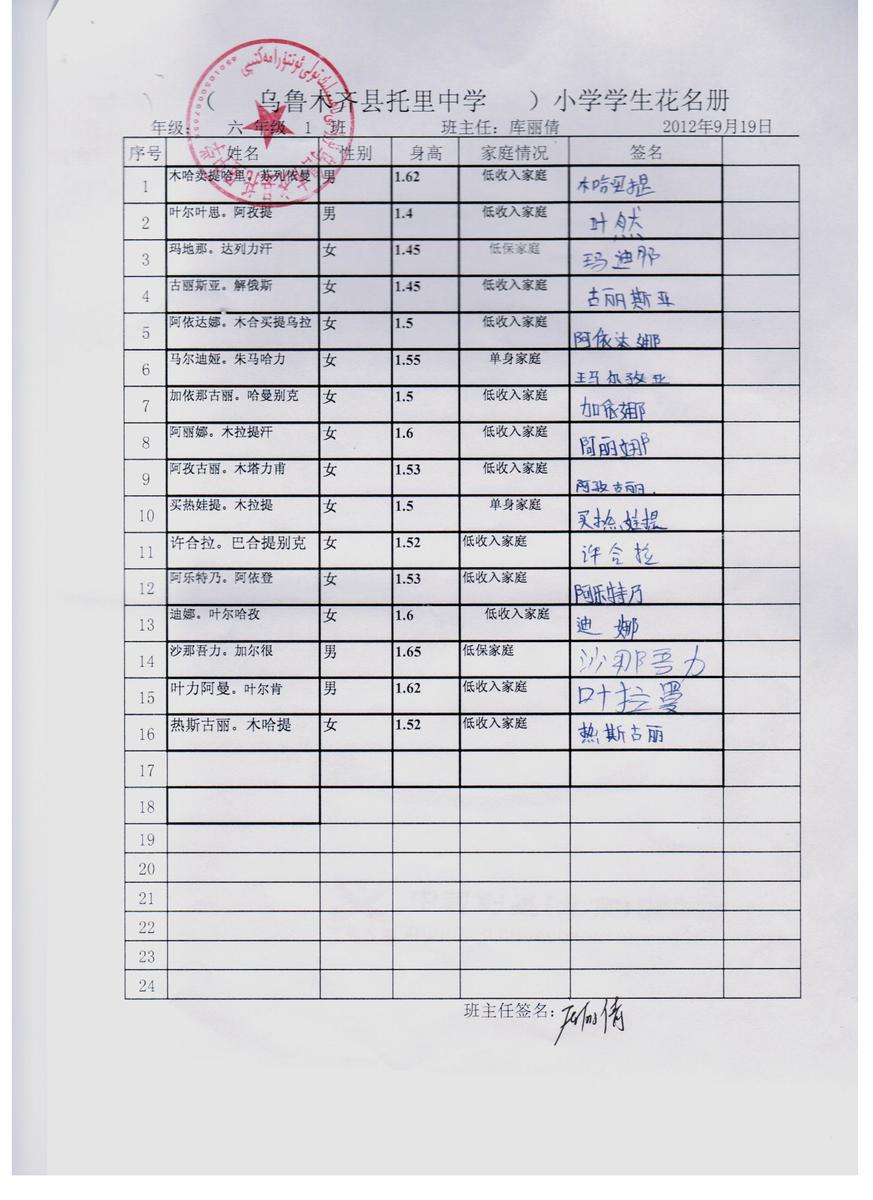 （ 乌鲁木齐县托里中学 ）小学学生花名册
年级： 六 年级 1 班 班主任：库丽倩 2012年9月19日
序号 姓名 性别 身高 家庭情况 签名
1 木哈买提哈里。苏列依曼 男 1.62 低收入家庭 木哈买提
2 叶尔叶思。阿孜提 男 1.4 低收入家庭 叶
3 玛地那。达列力汗 女 1.45 低保家庭 玛迪那
4 古丽斯亚。解俄斯 女 1.45 低收入家庭 古丽斯亚
5 阿依达娜。木合买提乌拉 女 1.5 低收入家庭 阿依达娜
6 马尔迪娅。朱马哈力 女 1.55 单身家庭
7 加依那古丽。哈曼别克 女 1.5 低收入家庭 加依娜
8 阿丽娜。木拉提汗 女 1.6 低收入家庭 阿丽娜
9 阿孜古丽。木塔力甫 女 1.53 低收入家庭 阿孜古丽.
10 买热娃提。木拉提 女 1.5 单身家庭 买热娃提
11 许合拉。巴合提别克 女 1.52 低收入家庭 许合拉
12 阿乐特乃。阿依登 女 1.53 低收入家庭 阿乐特乃
13 迪娜。叶尔哈孜 女 1.6 低收入家庭 迪娜
14 沙那吾力。加尔很 男 1.65 低保家庭 沙那吾力
15 叶力阿曼。叶尔肯 男 1.62 低收入家庭 叶拉曼
16 热斯古丽。木哈提 女 1.52 低收入家庭 热斯古丽
17
18
19
20
21
22
23
24
班主任签名：库丽倩